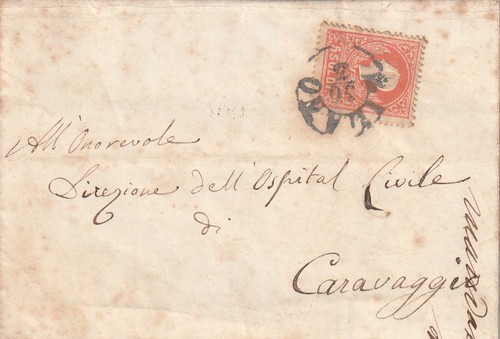 5 SOLDI
MILANO
All'Onorevole
Direzione dell'Ospital Civile
di
Caravaggio